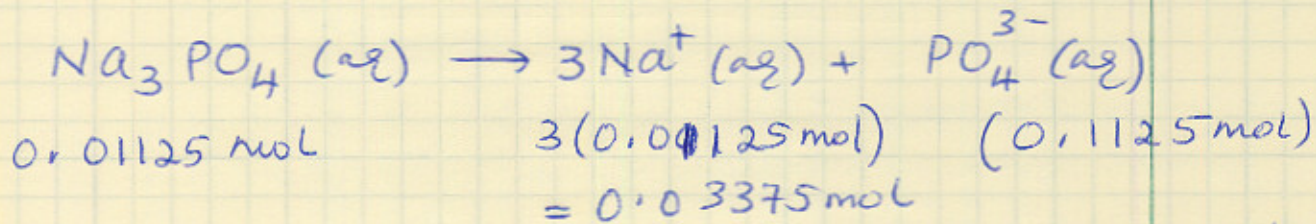 Na₃PO₄ (aq) → 3Na⁺ (aq) + PO₄³⁻ (aq)
0.01125 mol 3(0.01125 mol) (0.1125 mol)
= 0.03375 mol